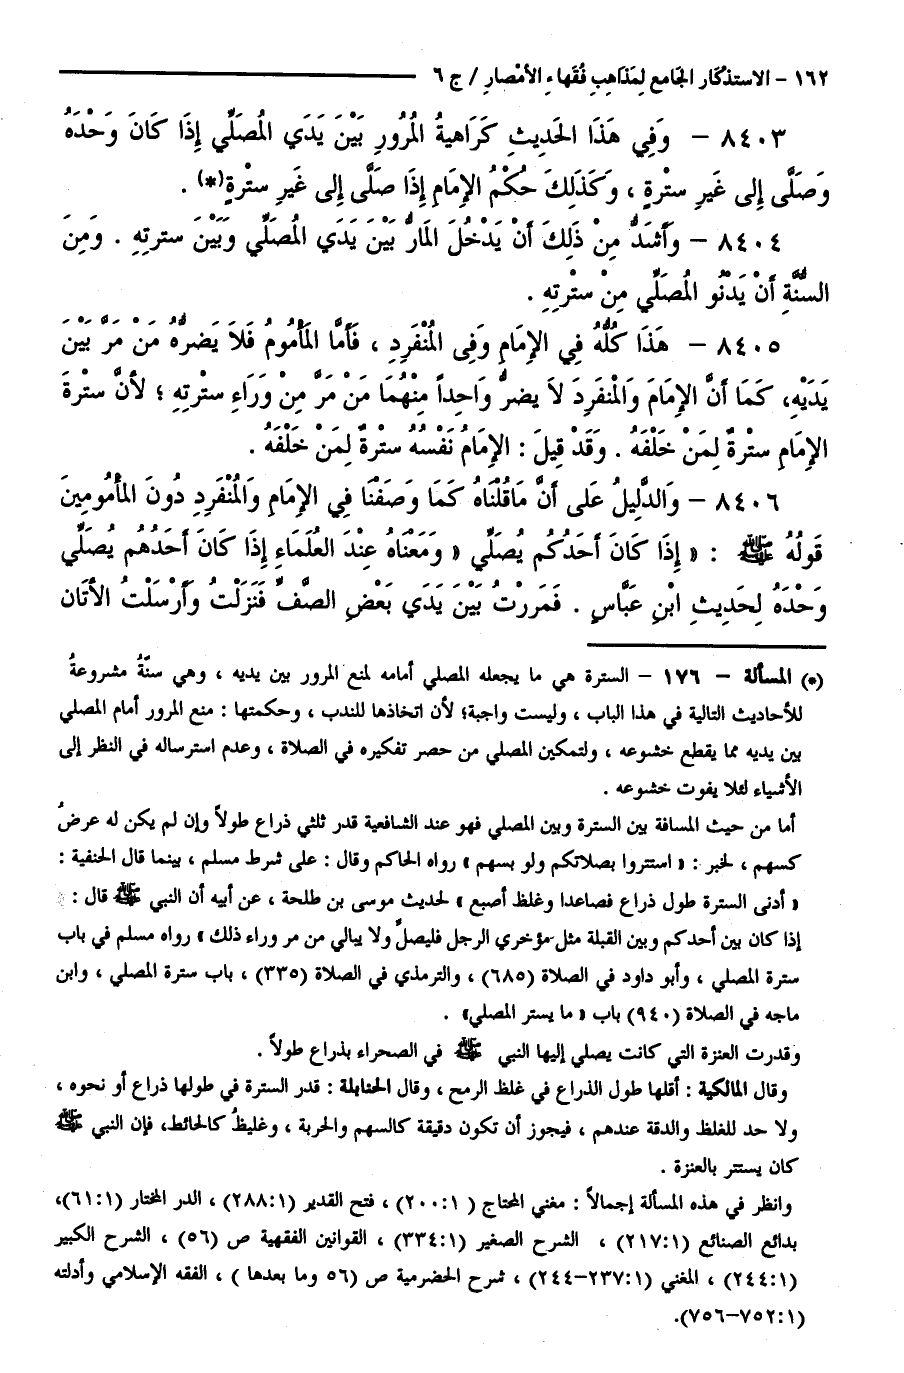 ١٦٢ - الاستذكار الجامع لمَذاهبِ فُقَهاءِ الأمْصارِ / ج ٦
٨٤٠٣ - وَفِي هَذَا الحَدِيثِ كَرَاهيةُ المُرُورِ بَيْنَ يَدَي المُصَلِّي إِذَا كَانَ وَحْدَهُ
وَصَلَّى إِلى غَيرِ سترةٍ ، وَكَذَلِكَ حُكْمُ الإِمَامِ إِذَا صَلَّى إِلى غَيرِ ستْرةٍ(*) .
٨٤٠٤ - وَأَشَدُّ مِنْ ذَلِكَ أَنْ يَدْخُلَ المَارُّ بَيْنَ يَدَي المُصَلِّي وَبَيْنَ سترتِهِ . وَمِنَ
السُّنَّةِ أَنْ يَدْنُو المُصَلِّي مِنْ ستْرتِهِ .
٨٤٠٥ - هَذَا كُلُّهُ فِي الإِمَامِ وَفِى المُنْفَرِدِ ، فَأَمَّا المَأْمُومُ فَلاَ يَضرُّهُ مَنْ مَرَّ بَيْنَ
يَدَيْهِ، كَمَا أَنَّ الإِمَامَ وَالمُنْفَرِدَ لاَ يضرُّ وَاحِداً مِنْهُمَا مَنْ مَرَّ مِنْ وَرَاءِ ستْرتِهِ ؛ لأنَّ ستْرةَ
الإِمَامِ ستْرةٌ لِمَنْ خَلْفَهُ . وَقَدْ قِيلَ : الإِمَامُ نَفْسُهُ ستْرةٌ لِمَنْ خَلْفَهُ .
٨٤٠٦ - وَالدَّلِيلُ عَلى أَنَّ مَاقُلْنَاهُ كَمَا وَصَفْنَا فِي الإِمَامِ وَالمُنْفَرِدِ دُونَ المَأْمُومِينَ
قَولُهُ ﷺ : « إِذَا كَانَ أَحَدُكُم يُصَلِّي « وَمَعْنَاهُ عِنْدَ العُلَمَاءِ إِذَا كَانَ أَحَدُهُم يُصَلِّي
وَحْدَهُ لِحَدِيثِ ابْنِ عَبَّاسٍ . فَمَررتُ بَيْنَ يَدَي بَعْضِ الصَّفِّ فَنَزَلْتُ وَأَرْسَلْتُ الأَتَان
(*) المسألة - ١٧٦ - السترة هي ما يجعله المصلي أمامه لمنع المرور بين يديه ، وهي سنَّةُ مشروعةُ
للأحاديث التالية في هذا الباب ، وليست واجبة؛ لأن اتخاذها للندب ، وحكمتها : منع المرور أمام المصلي
بين يديه مما يقطع خشوعه ، ولتمكين المصلي من حصر تفكيره في الصلاة ، وعدم استرساله في النظر إلى
الأشياء لئلا يفوت خشوعه .
أما من حيث المسافة بين السترة وبين المصلي فهو عند الشافعية قدر ثلثي ذراع طولاً وإن لم يكن له عرضُ
كسهم ، لخبر : « استتروا بصلاتكم ولو بسهم » رواه الحاكم وقال : على شرط مسلم ، بينما قال الحنفية :
« أدنى السترة طول ذراع فصاعدا وغلظ أصبع » لحديث موسى بن طلحة ، عن أبيه أن النبي ﷺ قال :
إذا كان بين أحدكم وبين القبلة مثل مؤخري الرجل فليصلِّ ولا يبالي من مر وراء ذلك » رواه مسلم في باب
سترة المصلي ، وأبو داود في الصلاة (٦٨٥) ، والترمذي في الصلاة (٣٣٥) ، باب سترة المصلي ، وابن
ماجه في الصلاة (٩٤٠) باب « ما يستر المصلي» .
وقدرت العنزة التي كانت يصلي إليها النبي ﷺ في الصحراء بذراع طولاً .
وقال المالكية : أقلها طول الذراع في غلظ الرمح ، وقال الحنابلة : قدر السترة في طولها ذراع أو نحوه ،
ولا حد للغلظ والدقة عندهم ، فيجوز أن تكون دقيقة كالسهم والحربة ، وغليظُ كالحائط، فإن النبي ﷺ
كان يستتر بالعنزة .
وانظر في هذه المسألة إجمالاً : مغني المحتاج ( ٢٠٠:١) ، فتح القدير (٢٨٨:١) ، الدر المختار (٦١:١)،
بدائع الصنائع (٢١٧:١) ، الشرح الصغير (٣٣٤:١) ، القوانين الفقهية ص (٥٦) ، الشرح الكبير
(٢٤٤:١) ، المغني (٢٣٧:١-٢٤٤) ، شرح الحضرمية ص (٥٦ وما بعدها ) ، الفقه الإسلامي وأدلته
(٧٥٢:١-٧٥٦).